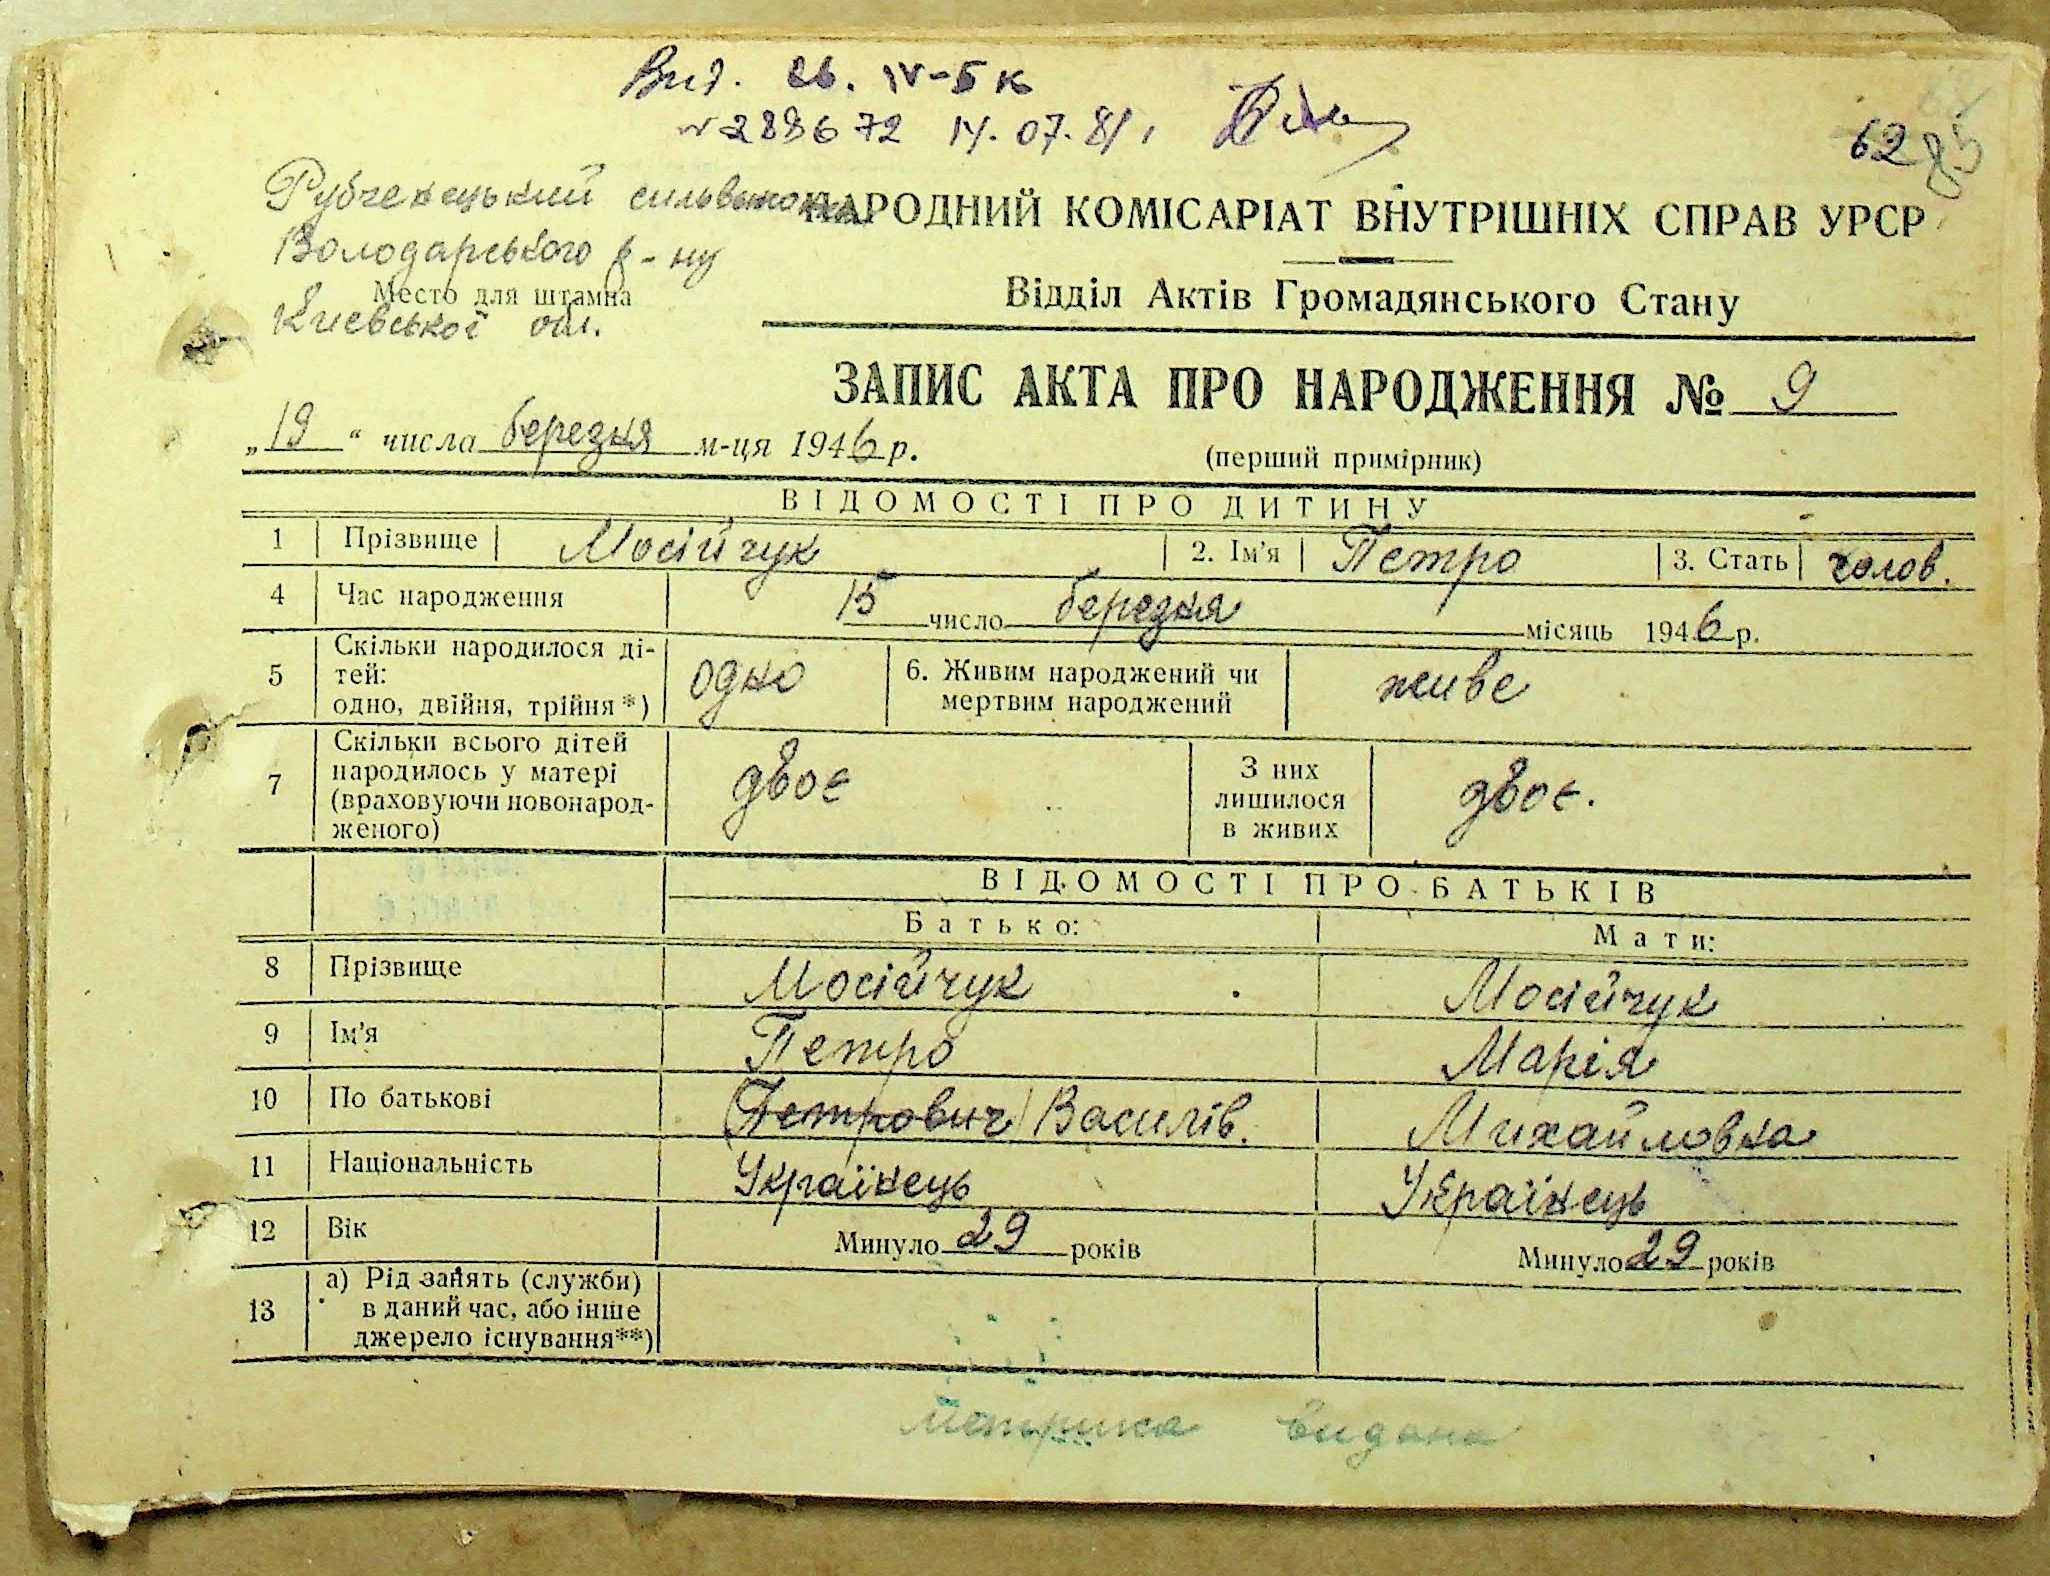 Вид. св. IV-БК
№ 288672 14.07.81,
62 85
Рубченський сильвиконком
НАРОДНИЙ КОМІСАРІАТ ВНУТРІШНІХ СПРАВ УРСР
Володарського р-ну
Место для штампа
Відділ Актів Громадянського Стану
Киевської обл.
ЗАПИС АКТА ПРО НАРОДЖЕННЯ № 9
„19“ числа березня м-ця 1946 р.
(перший примірник)
ВІДОМОСТІ ПРО ДИТИНУ
1 Прізвище Мосійчук 2. Ім'я Петро 3. Стать чолов.
4 Час народження 15 число березня місяць 1946 р.
5 Скільки народилося ді-
тей:
одно, двійня, трійня*) одно 6. Живим народжений чи
мертвим народжений живе
7 Скільки всього дітей
народилось у матері
(враховуючи новонарод-
женого) двоє З них
лишилося
в живих двоє.
ВІДОМОСТІ ПРО БАТЬКІВ
Батько: Мати:
8 Прізвище Мосійчук Мосійчук
9 Ім'я Петро Марія
10 По батькові (Петрович) Василів. Михайловна
11 Національність Українець Українець
12 Вік Минуло 29 років Минуло 29 років
13 а) Рід занять (служби)
в даний час, або інше
джерело існування**)
метрика видана